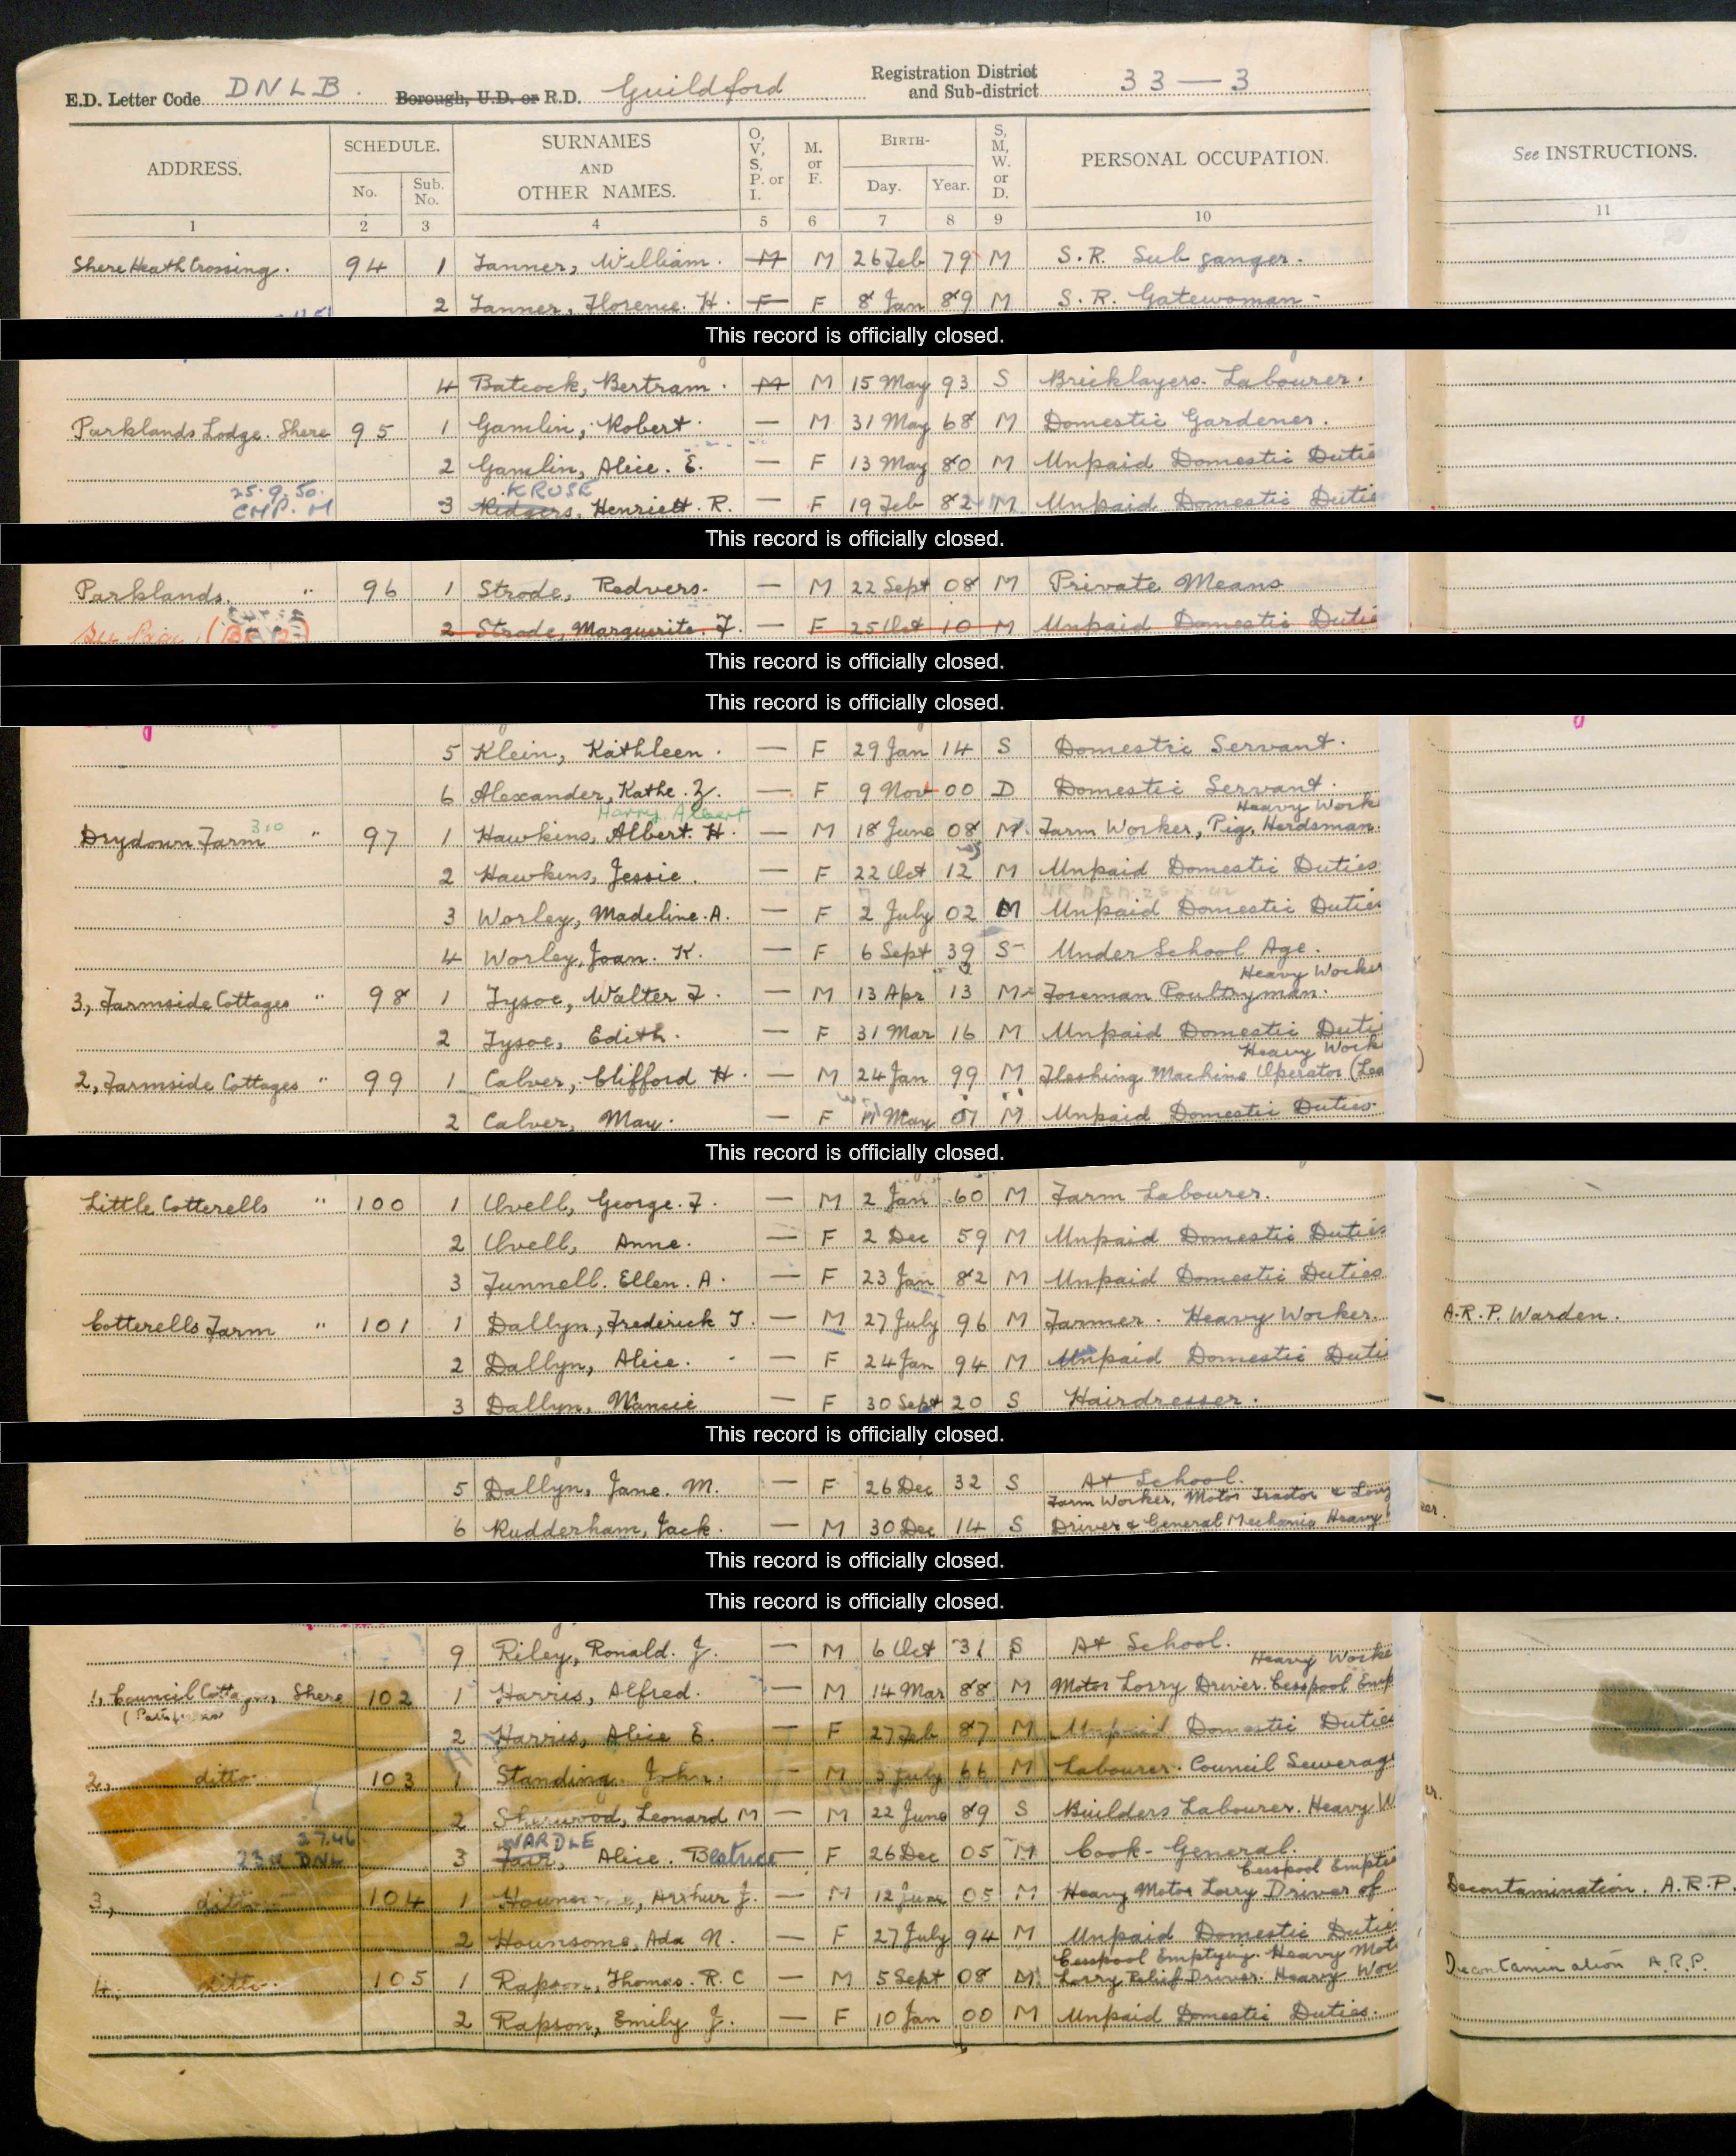 E.D. Letter Code DNLB. Borough, U.D. or R.D. Guildford Registration District and Sub-district 33—3
ADDRESS. SCHEDULE. No. Sub. No. SURNAMES AND OTHER NAMES. O, V, S, P. or I. M. or F. BIRTH- Day. Year. S, M, W. or D. PERSONAL OCCUPATION. See INSTRUCTIONS.
1 2 3 4 5 6 7 8 9 10 11
Shere Heath Crossing. 94 1 Tanner, William. M M 26 Feb 79 M S.R. Sub ganger.
2 Tanner, Florence. H. F F 8 Jan 89 M S.R. Gatewoman -
This record is officially closed.
4 Batcock, Bertram. M M 15 May 93 S Bricklayers Labourer.
Parklands Lodge. Shere 95 1 Gamlin, Robert. — M 31 May 68 M Domestic Gardener.
2 Gamlin, Alice. E. — F 13 May 80 M Unpaid Domestic Dutie
25.9.50. KRUSE
CMP. M 3 Ridgers, Henriett. R. — F 19 Feb 82 M Unpaid Domestic Dutie
This record is officially closed.
Parklands. " 96 1 Strode, Redvers. — M 22 Sept 08 M Private Means
2 Strode, Marguerite. F. — F 25 Oct 10 M Unpaid Domestic Dutie
This record is officially closed.
This record is officially closed.
5 Klein, Kathleen. — F 29 Jan 14 S Domestic Servant.
6 Alexander, Kathe. Z. — F 9 Nov 00 D Domestic Servant.
Harry Albert Heavy Work
Drydown Farm 310 " 97 1 Hawkins, Albert. H. — M 18 June 08 M. Farm Worker, Pig, Herdsman.
2 Hawkins, Jessie. — F 22 Oct 12 M Unpaid Domestic Duties
3 Worley, Madeline. A. — F 2 July 02 M Unpaid Domestic Duties
4 Worley, Joan. K. — F 6 Sept 39 S Under School Age.
Heavy Worker
3, Farmside Cottages " 98 1 Tysoe, Walter F. — M 13 Apr 13 M Foreman Poultryman.
2 Tysoe, Edith. — F 31 Mar 16 M Unpaid Domestic Duti
Heavy Work
2, Farmside Cottages " 99 1 Calver, Clifford H. — M 24 Jan 99 M Fleshing Machine Operator (Lea )
2 Calver, May. — F 11 May 07 M Unpaid Domestic Duties.
This record is officially closed.
Little Cotterells " 100 1 Ovell, George. F. — M 2 Jan 60 M Farm Labourer.
2 Ovell, Anne. — F 2 Dec 59 M Unpaid Domestic Duties
3 Tunnell. Ellen. A. — F 23 Jan 82 M Unpaid Domestic Duties
Cotterells Farm " 101 1 Dallyn, Frederick T. — M 27 July 96 M Farmer. Heavy Worker. A.R.P. Warden.
2 Dallyn, Alice. — F 24 Jan 94 M Unpaid Domestic Duti
3 Dallyn, Nancie — F 30 Sept 20 S Hairdresser.
This record is officially closed.
5 Dallyn, Jane. M. — F 26 Dec 32 S At School.
Farm Worker, Motor Tractor & Lorry
6 Rudderham, Jack. — M 30 Dec 14 S Driver & General Mechanic Heavy
This record is officially closed.
This record is officially closed.
9 Riley, Ronald. J. — M 6 Oct 31 S At School.
Heavy Worke
1, Council Cottages, Shere 102 1 Harris, Alfred. — M 14 Mar 88 M Motor Lorry Driver. Cesspool Emp
2 Harris, Alice E. — F 27 Feb 87 M Unpaid Domestic Duties
2, ditto 103 1 Standing. John. — M 3 July 66 M Labourer. Council Sewerage
2 Sherwood, Leonard M — M 22 June 89 S Builders Labourer. Heavy W er.
WARDLE
DNL 3 Fair, Alice. Beatrice — F 26 Dec 05 M Cook-General.
Cesspool Emptie
3, ditto 104 1 Arthur J. — M 12 June 05 M Heavy Motor Lorry Driver of Decontamination. A.R.P.
2 Hounsome, Ada N. — F 27 July 94 M Unpaid Domestic Dutie
Cesspool Emptying. Heavy Moto
4, ditto. 105 1 Rapson, Thomas. R. C — M 5 Sept 08 M Lorry Relief Driver. Heavy Wor Decontamination A.R.P.
2 Rapson, Emily J. — F 10 Jan 00 M Unpaid Domestic Duties.